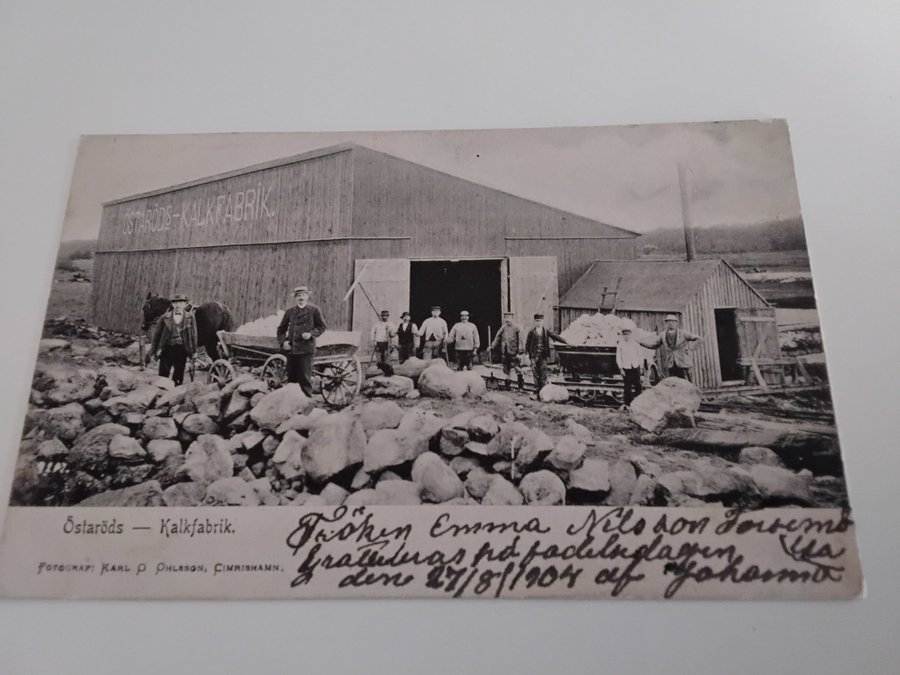 ÖSTARÖDS-KALKFABRIK.
Östaröds — Kalkfabrik.
FOTOGRAF: KARL O OHLSSON, CIMRISHAMN.
Fröken Emma Nilsson
Gratuleras på födelsdagen
dene 27/8 1904 af Johanna